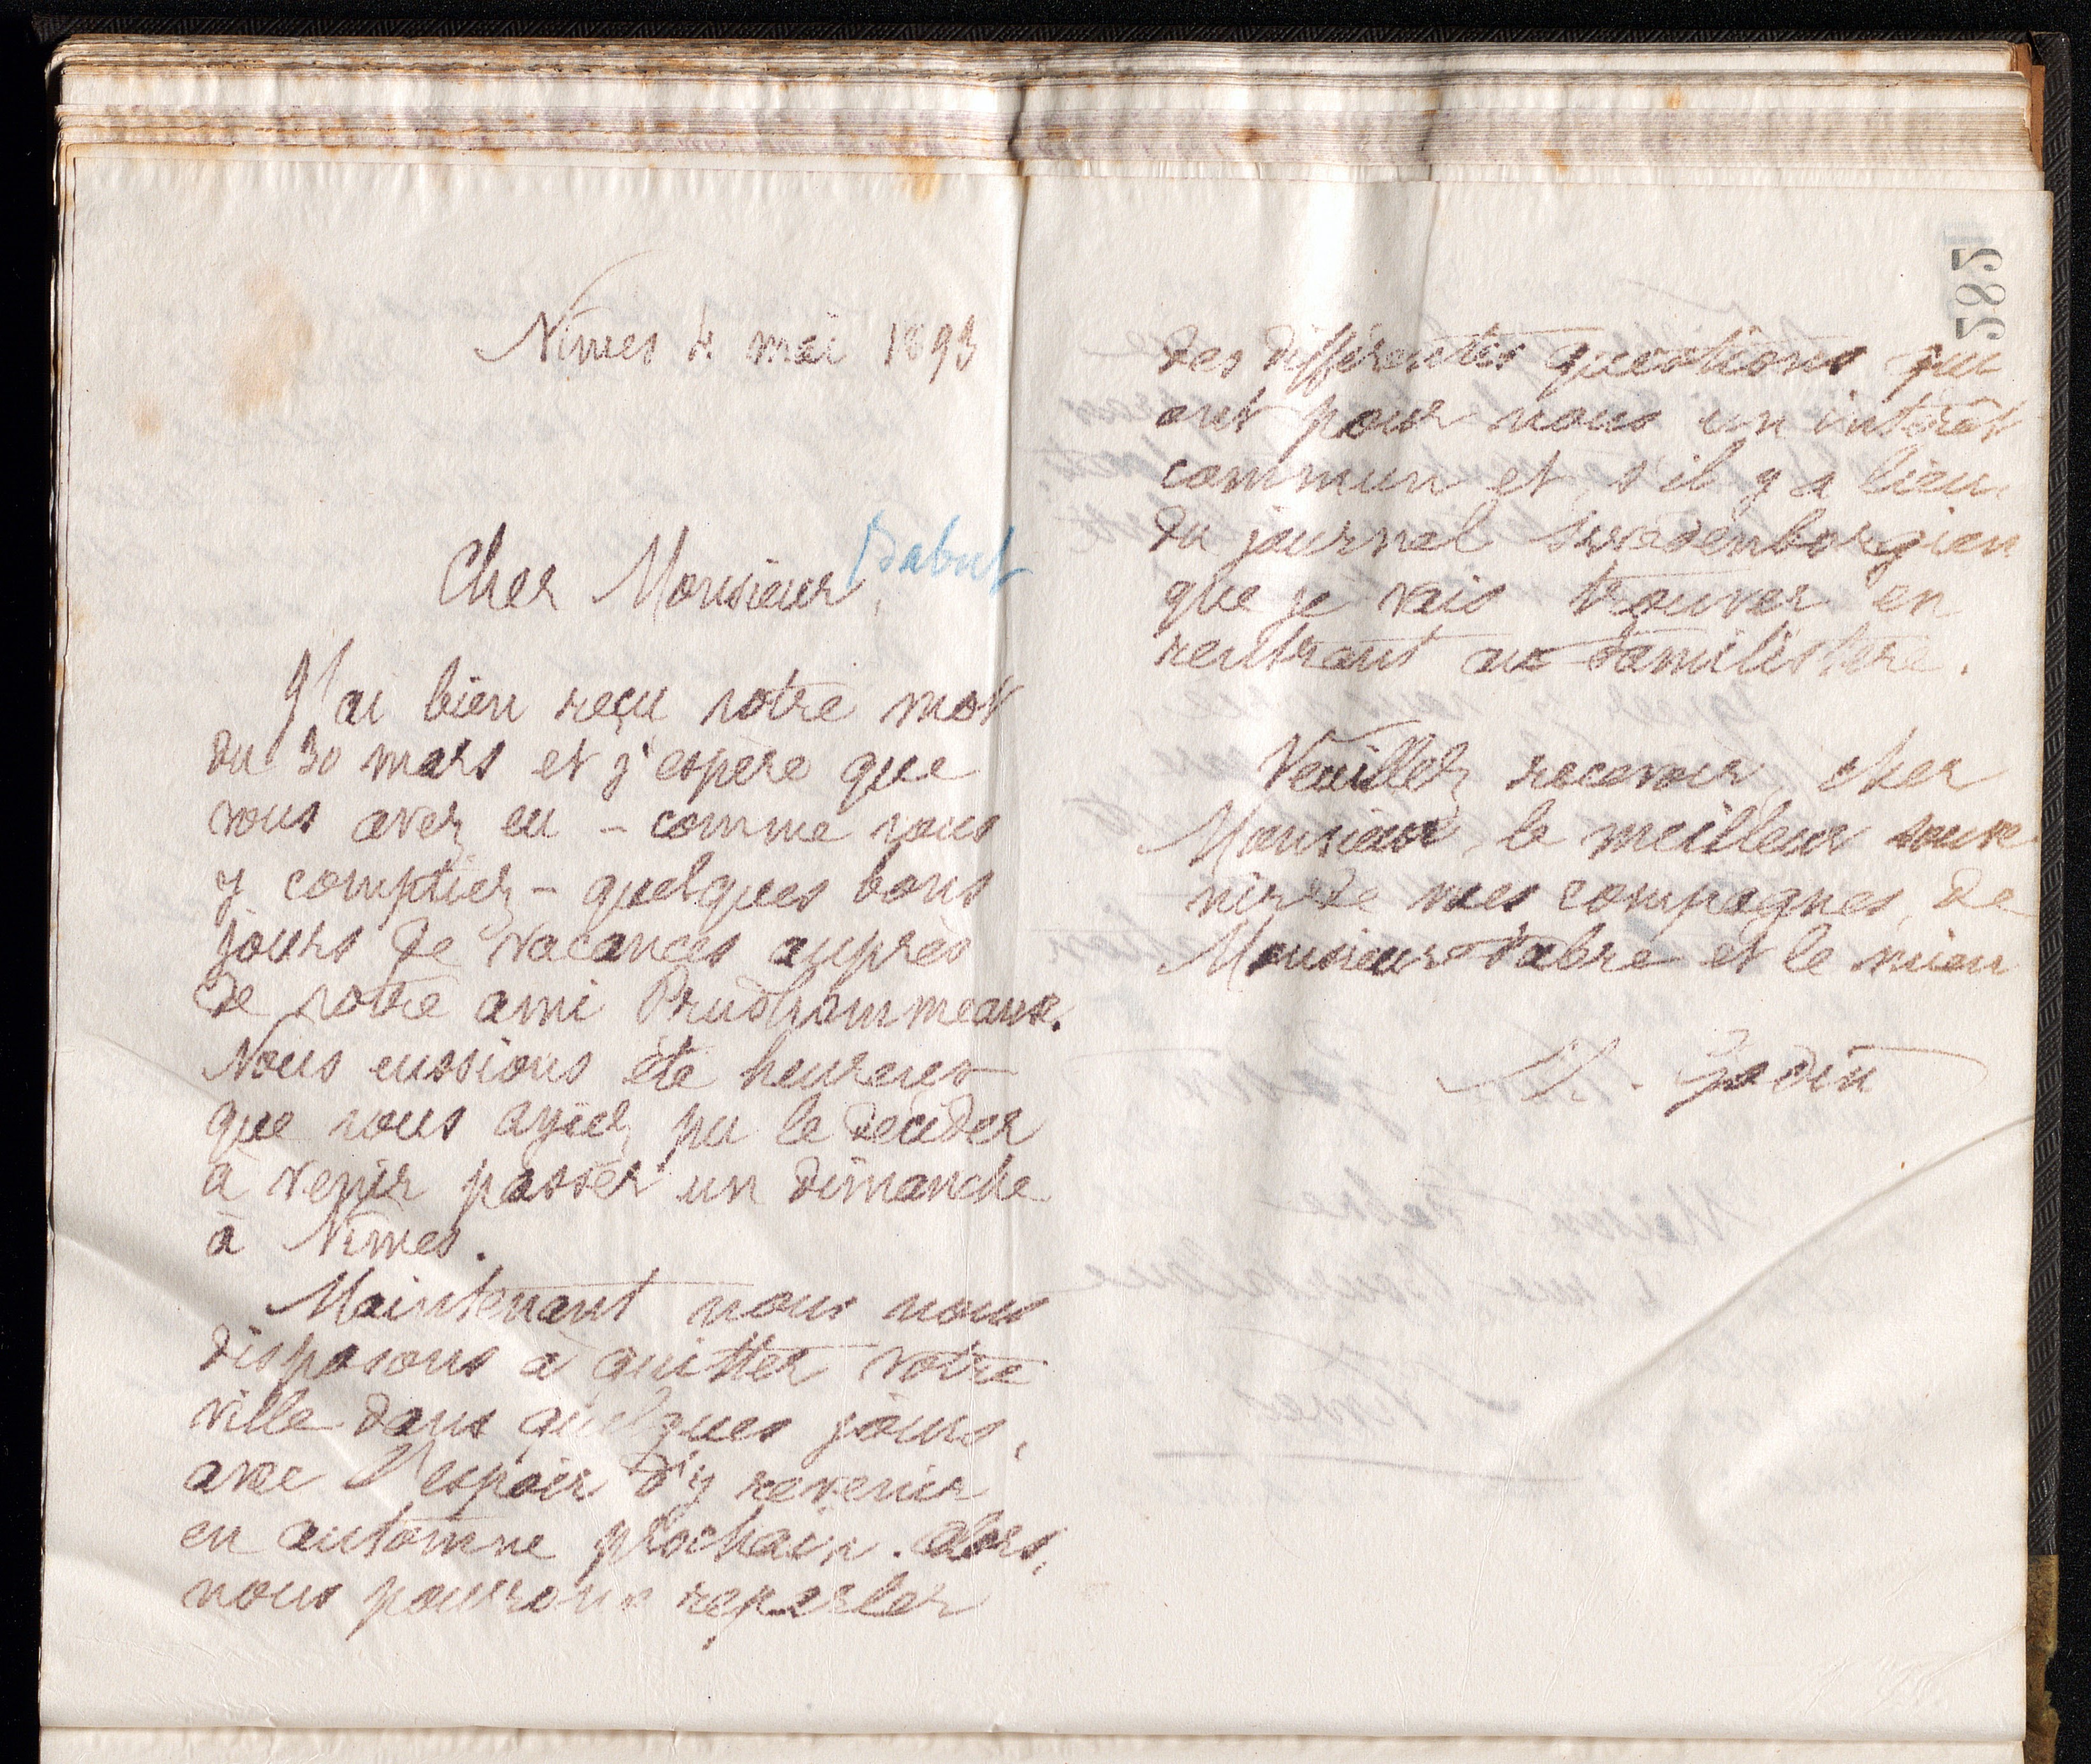 Nîmes 4 mai 1893
Cher Monsieur, Babut
J'ai bien reçu votre mot
du 30 mars et j'espère que
vous avez eu - comme vous
y comptiez - quelques bons
jours de vacances auprès
de notre ami Prudhommeaux.
Nous eussions été heureux
que vous ayiez pu le décider
à venir passer un dimanche
à Nîmes.
Maintenant nous nous
disposons à quitter votre
ville dans quelques jours,
avec l'espoir d'y revenir
en automne prochain. Alors,
nous pourrons reparler
585
des différentes questions qui
ont pour nous un intérêt
commun et, s'il y a lieu,
du journal swedenborgien
que je vais trouver en
rentrant au Familistère.
Veuillez recevoir, cher
Monsieur, le meilleur souve
nir de mes compagnes, de
Monsieur Fabre et le mien
M. Godin